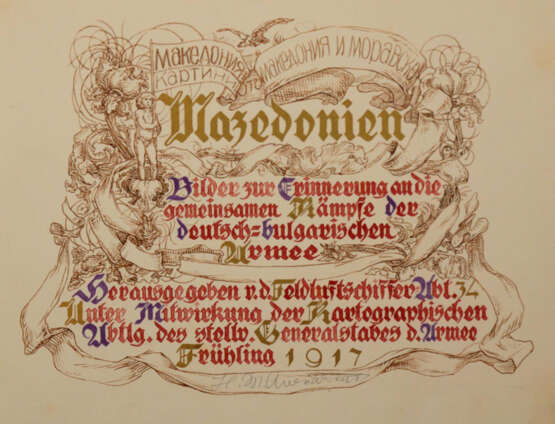 македония
македония и моравска
Mazedonien
Bilder zur Erinnerung an die
gemeinsamen Kämpfe der
deutsch=bulgarischen
Armee
Herausgegeben v.d. Feldluftschiffer Abt. 34
Unter Mitwirkung der Kartographischen
Abtlg. des stellv. Generalstabes d. Armee
Frühling 1917